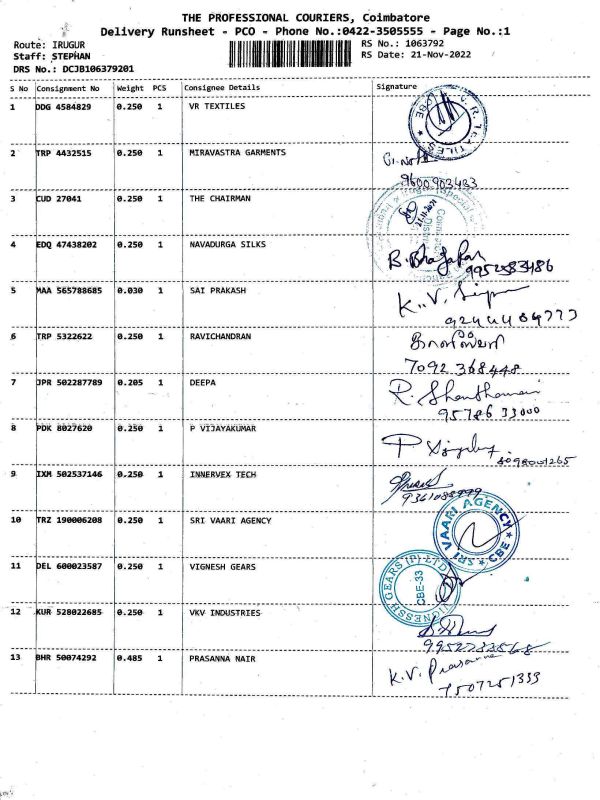 THE PROFESSIONAL COURIERS, Coimbatore
Delivery Runsheet - PCO - Phone No.:0422-3505555 - Page No.:1
Route: IRUGUR
RS No.: 1063792
Staff: STEPHAN
RS Date: 21-Nov-2022
DRS No.: DCJB106379201
S No Consignment No Weight PCS Consignee Details Signature
1 DDG 4584829 0.250 1 VR TEXTILES
V.R. TEXTILES CBE
2 TRP 4432515 0.250 1 MIRAVASTRA GARMENTS
9600903433
3 CUD 27041 0.250 1 THE CHAIRMAN
4 EDQ 47438202 0.250 1 NAVADURGA SILKS
9952583486
5 MAA 565788685 0.030 1 SAI PRAKASH
K.V.
6 TRP 5322622 0.250 1 RAVICHANDRAN
7092 368448
7 JPR 502287789 0.205 1 DEEPA
95786 33000
8 PDK 8027620 0.250 1 P VIJAYAKUMAR
9 IXM 502537146 0.250 1 INNERVEX TECH
10 TRZ 190006208 0.250 1 SRI VAARI AGENCY
SRI VAARI AGENCY CBE
11 DEL 600023587 0.250 1 VIGNESH GEARS
VIGNESSH GEARS (P) LTD CBE-33
12 KUR 528022685 0.250 1 VKV INDUSTRIES
13 BHR 50074292 0.485 1 PRASANNA NAIR
K.V. Prasanna
7507251333